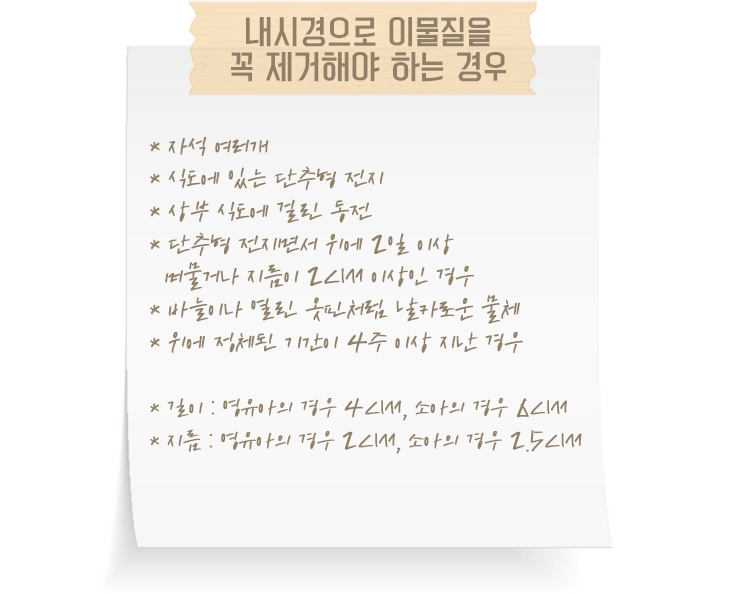 내시경으로 이물질을
꼭 제거해야 하는 경우
* 자석 여러개
* 식도에 있는 단추형 전지
* 상부 식도에 걸린 동전
* 단추형 전지면서 위에 2일 이상
머물거나 지름이 2cm 이상인 경우
* 바늘이나 열린 옷핀처럼 날카로운 물체
* 위에 정체된 기간이 4주 이상 지난 경우
* 길이 : 영유아의 경우 4cm, 소아의 경우 6cm
* 지름 : 영유아의 경우 2cm, 소아의 경우 2.5cm